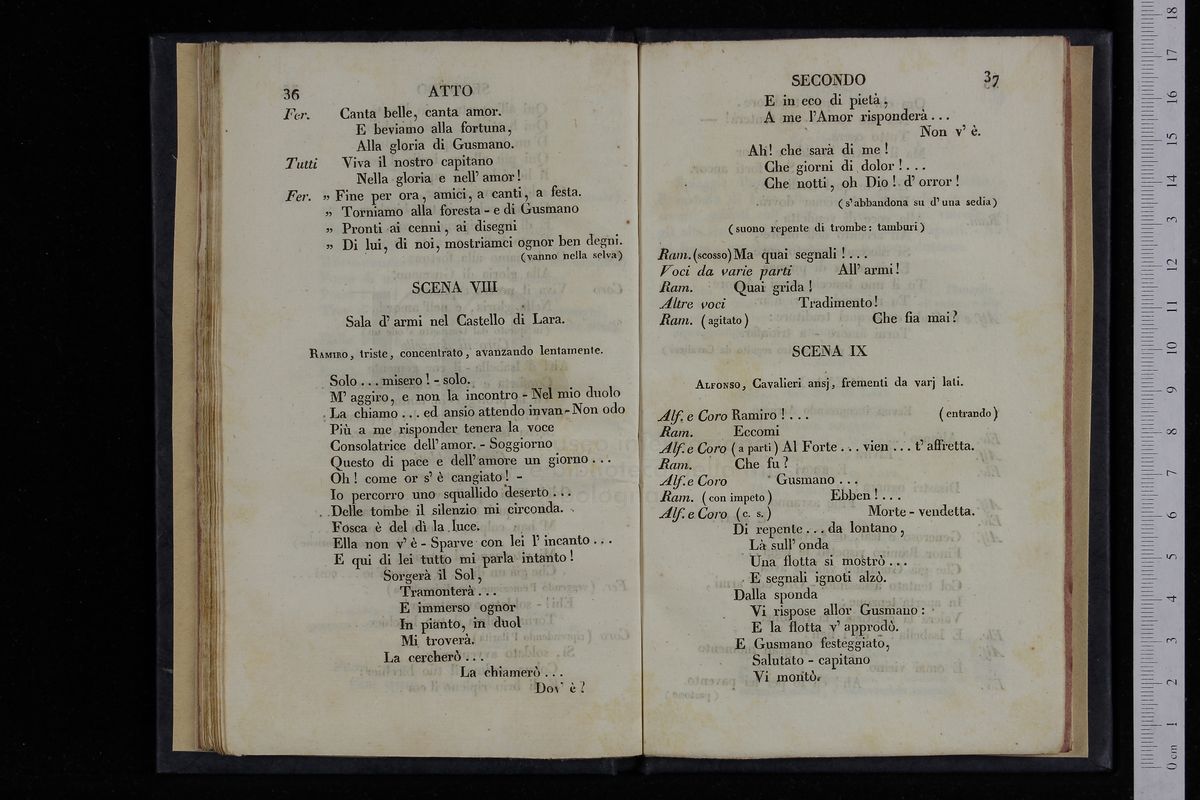 36 ATTO
Fer. Canta belle, canta amor.
E beviamo alla fortuna,
Alla gloria di Gusmano.
Tutti Viva il nostro capitano
Nella gloria e nell' amor!
Fer. „ Fine per ora, amici, a canti, a festa.
„ Torniamo alla foresta - e di Gusmano
„ Pronti ai cenni, ai disegni
„ Di lui, di noi, mostriamci ognor ben degni.
(vanno nella selva)
SCENA VIII
Sala d' armi nel Castello di Lara.
RAMIRO, triste, concentrato, avanzando lentamente.
Solo ... misero! - solo.
M' aggiro, e non la incontro - Nel mio duolo
La chiamo ... ed ansio attendo invan - Non odo
Più a me risponder tenera la voce
Consolatrice dell' amor. - Soggiorno
Questo di pace e dell' amore un giorno ...
Oh! come or s' è cangiato! -
Io percorro uno squallido deserto ...
Delle tombe il silenzio mi circonda.
Fosca è del dì la luce.
Ella non v' è - Sparve con lei l' incanto ...
E qui di lei tutto mi parla intanto!
Sorgerà il Sol,
Tramonterà ...
E immerso ognor
In pianto, in duol
Mi troverà.
La cercherò ...
La chiamerò ...
Dov' è?
SECONDO 37
E in eco di pietà,
A me l'Amor risponderà ...
Non v' è.
Ah! che sarà di me!
Che giorni di dolor! ...
Che notti, oh Dio! d' orror!
(s' abbandona su d' una sedia)
(suono repente di trombe: tamburi)
Ram. (scosso) Ma quai segnali! ...
Voci da varie parti All' armi!
Ram. Quai grida!
Altre voci Tradimento!
Ram. (agitato) Che fia mai?
SCENA IX
ALFONSO, Cavalieri ansj, frementi da varj lati.
Alf. e Coro Ramiro! ... (entrando)
Ram. Eccomi
Alf. e Coro (a parti) Al Forte ... vien ... t' affretta.
Ram. Che fu?
Alf. e Coro Gusmano ...
Ram. (con impeto) Ebben! ...
Alf. e Coro (c. s.) Morte - vendetta.
Di repente ... da lontano,
Là sull' onda
Una flotta si mostrò ...
E segnali ignoti alzò.
Dalla sponda
Vi rispose allor Gusmano:
E la flotta v' approdò.
E Gusmano festeggiato,
Salutato - capitano
Vi montò.
0 cm 1 2 3 4 5 6 7 8 9 10 11 12 13 14 15 16 17 18